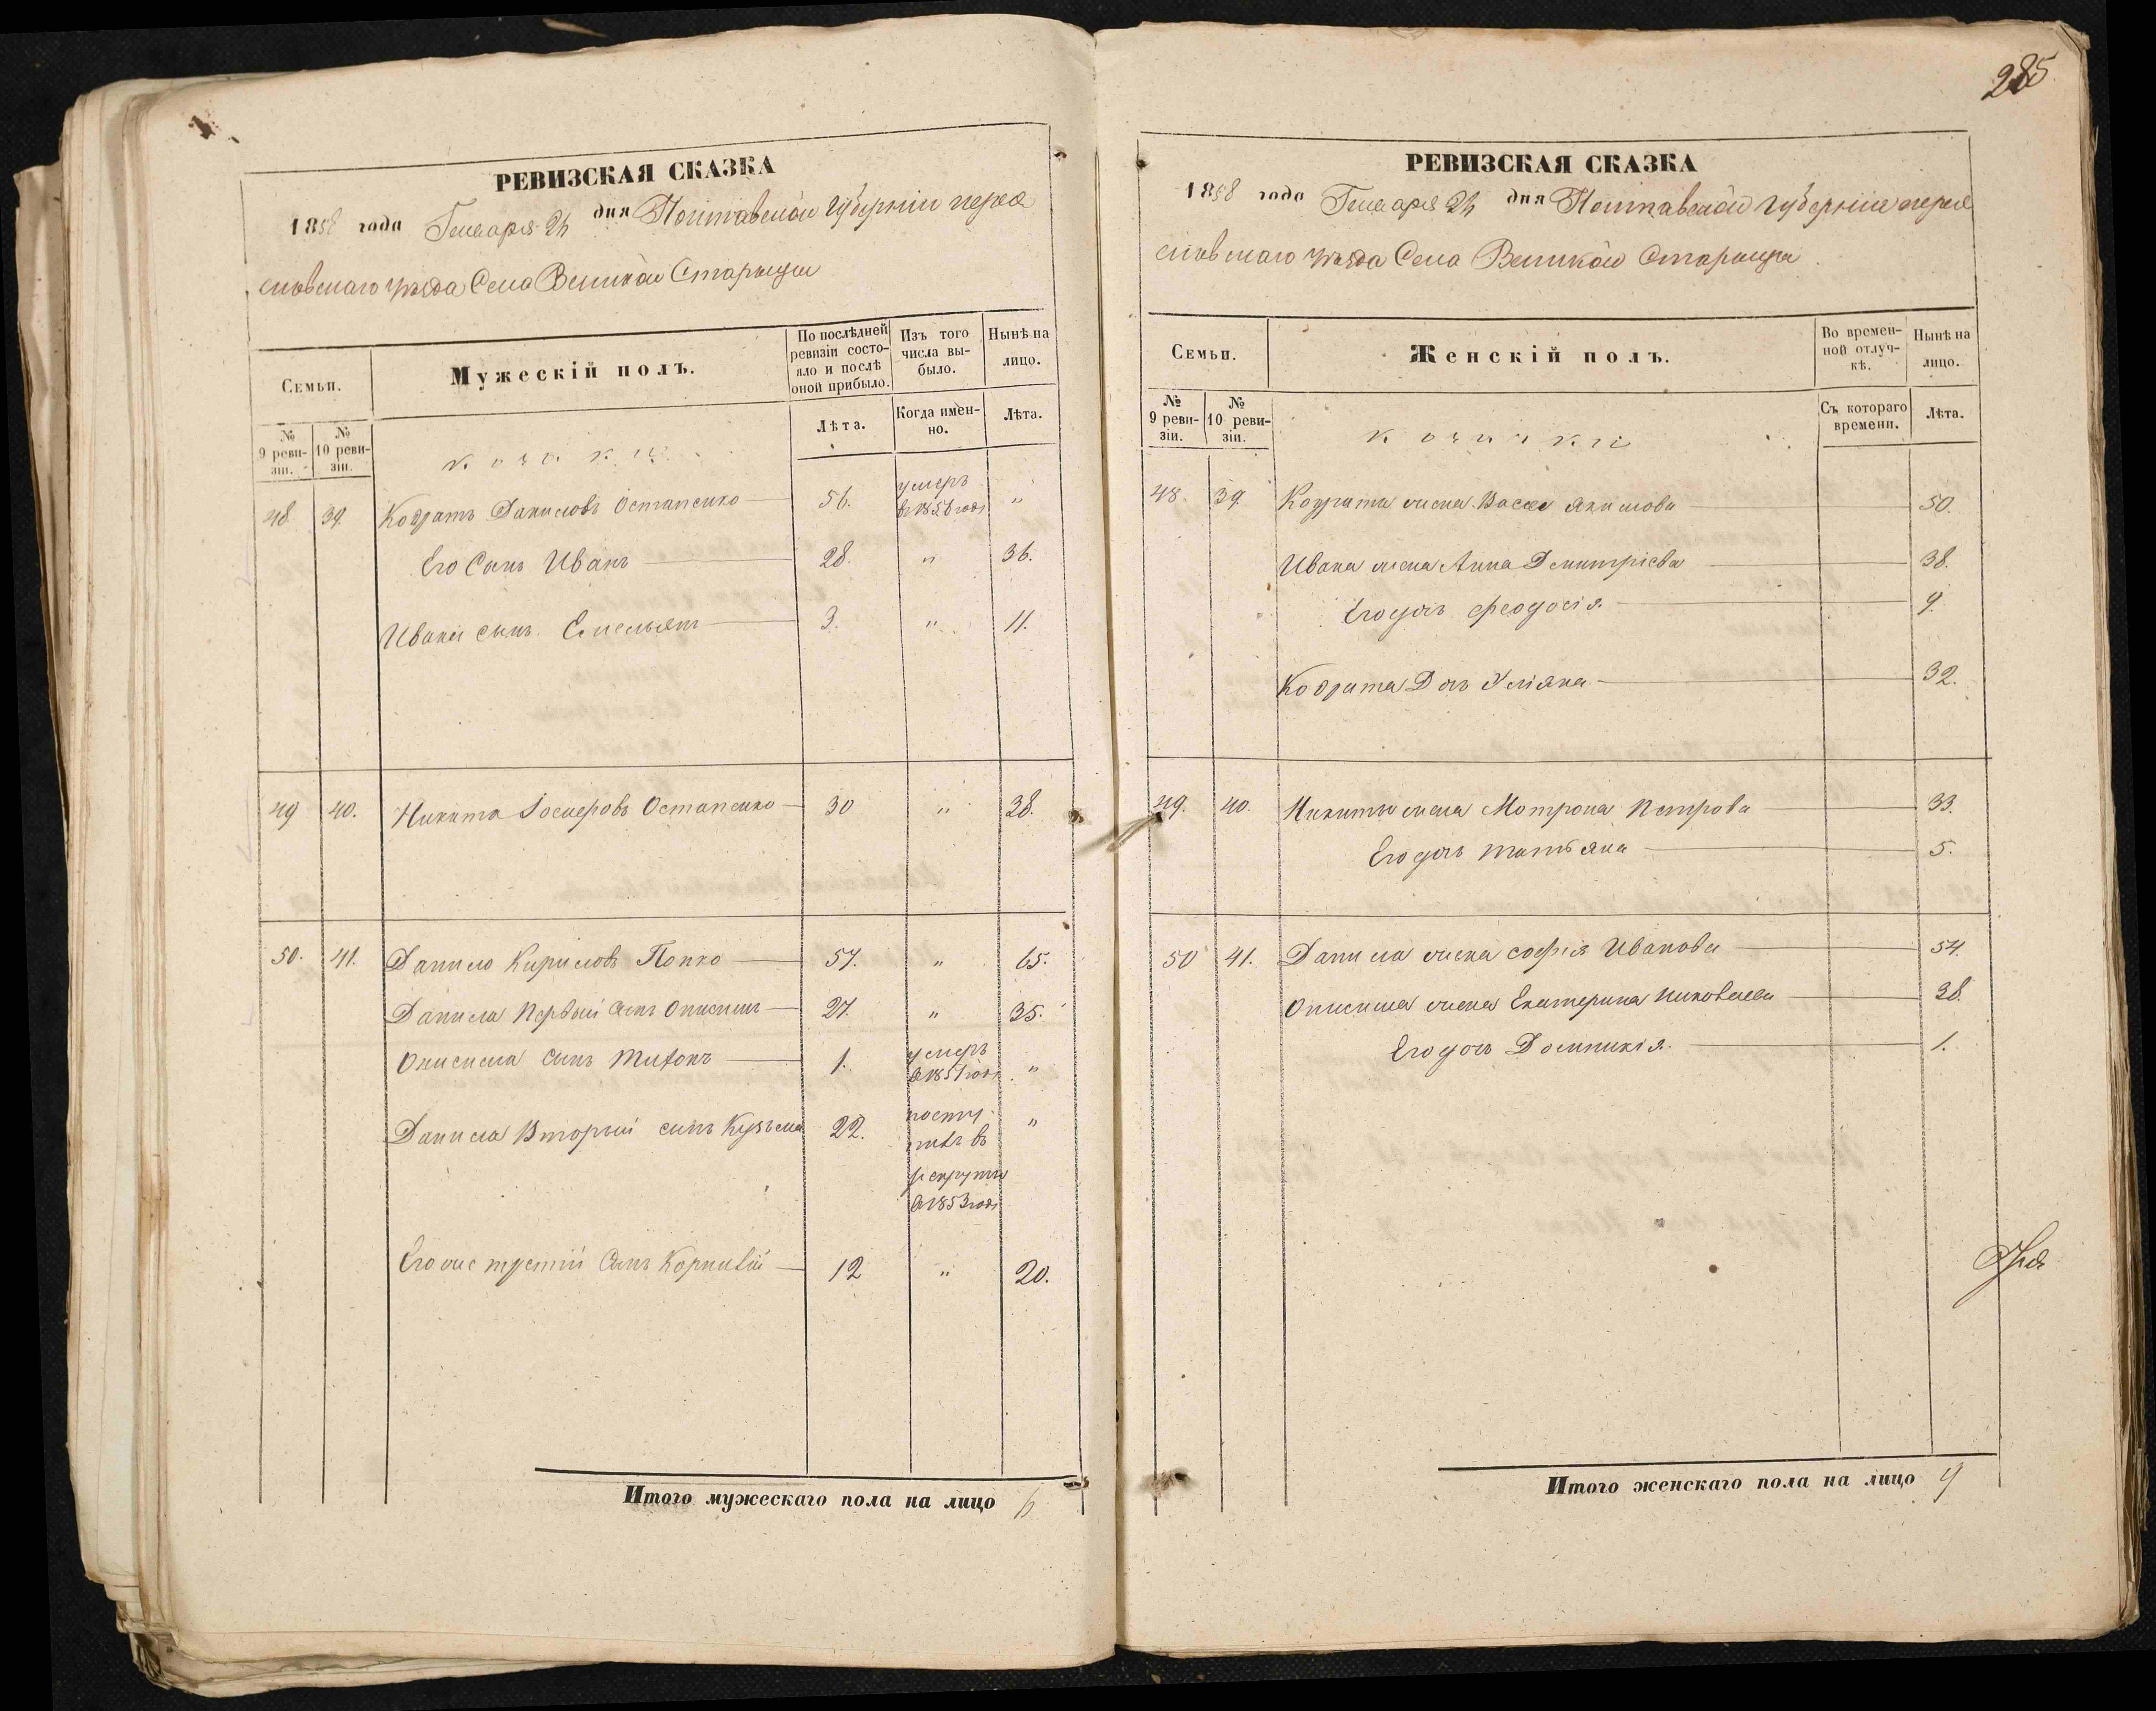 285
РЕВИЗСКАЯ СКАЗКА
1858 года Генваря 24 дня Полтавской Губерніи перея
славскаго уѣзда Села Великой Старицы
Семьи.
Мужескій полъ.
По послѣдней ревизіи состояло и послѣ оной прибыло.
Изъ того числа выбыло.
Нынѣ на лицо.
№ 9 ревизіи.
№ 10 ревизіи.
козаки
Лѣта.
Когда именно.
Лѣта.
48 39. Кодратъ Даниловъ Остапенко 56. умеръ в 1856 годѣ "
Его Сынъ Иванъ 28. " 36.
Ивана сынъ Емельянъ 3. " 11.
49 40. Никита Іосиеровъ Остапенко 30 " 38.
50. 41. Данило Кириловъ Попко 57. " 65.
Данила Первый сынъ Онисимъ 27. " 35.
Онисима сынъ Титонъ 1. умеръ в 1851 годѣ "
Данила Вторый сынъ Кузьма 22. поступилъ въ рекруты в 1853 годѣ "
Его же третій Сынъ Корнилій 12 " 20.
Итого мужескаго пола на лицо 6
РЕВИЗСКАЯ СКАЗКА
1858 года Генваря 24 дня Полтавской Губерніи перея
славскаго уѣзда Села Великой Старицы.
Семьи.
Женскій полъ.
Во временной отлучкѣ.
Нынѣ на лицо.
№ 9 ревизіи.
№ 10 ревизіи.
козачки
Съ котораго времени.
Лѣта.
48. 39. Кодрата жена Васса Якимова 50.
Ивана жена Анна Дмитріева 38.
Его дочь Феодосія 9.
Кодрата Дочь Уліяна 32.
49. 40. Никиты жена Мотрона Петрова 33.
Его дочь Татьяна 5.
50 41. Данила жена софія Иванова 54.
Онисима жена Екатерина Николаева 38.
Его дочь Домникія 1.
Итого женскаго пола на лицо 9